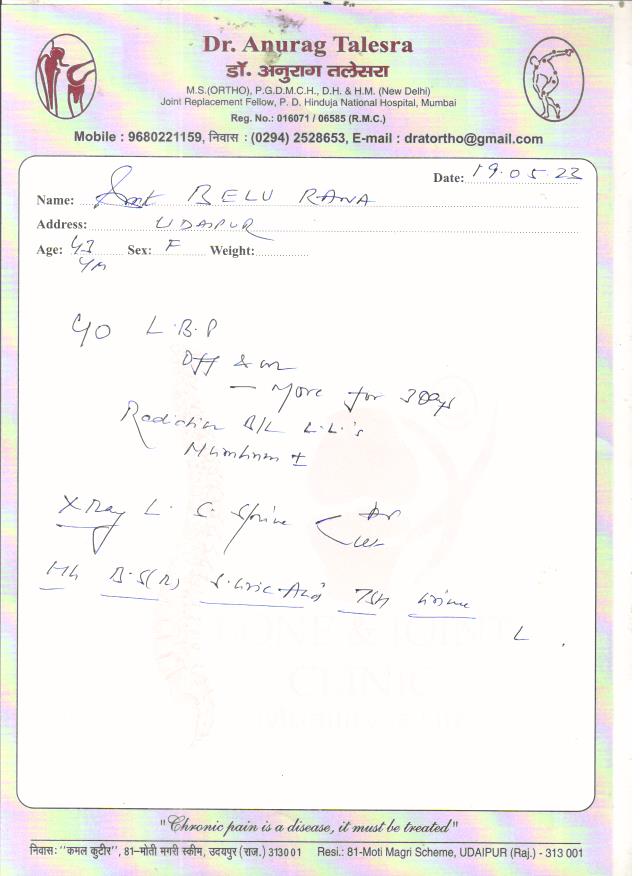 Dr. Anurag Talesra
डॉ. अनुराग तलेसरा
M.S.(ORTHO), P.G.D.M.C.H., D.H. & H.M. (New Delhi)
Joint Replacement Fellow, P. D. Hinduja National Hospital, Mumbai
Reg. No.: 016071 / 06585 (R.M.C.)
Mobile : 9680221159, निवास : (0294) 2528653, E-mail : dratortho@gmail.com
Date: 19.05.23
Name: Smt BELU RANA
Address: UDAIPUR
Age: 43 Sex: F Weight:
C/O L.B.P
Off & on
— More for 3 Days
Radiation B/L L.L's
±
X Ray L. S. Spine AP
Lat
Hb B.S(R) S. Uric Acid TSH Urine
BONE & JOINT
CLINIC
"Chronic pain is a disease, it must be treated"
निवास: "कमल कुटीर", 81–मोती मगरी स्कीम, उदयपुर (राज.) 313001 Resi.: 81-Moti Magri Scheme, UDAIPUR (Raj.) - 313 001